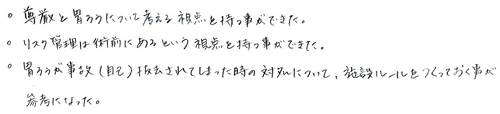 。尊厳と胃ろうについて考える視点を持つ事ができた。
。リスク管理は術前にあるという視点を持つ事ができた。
。胃ろうが事故(自己)抜去されてしまった時の対処について、施設ルールをつくっておく事が
参考になった。